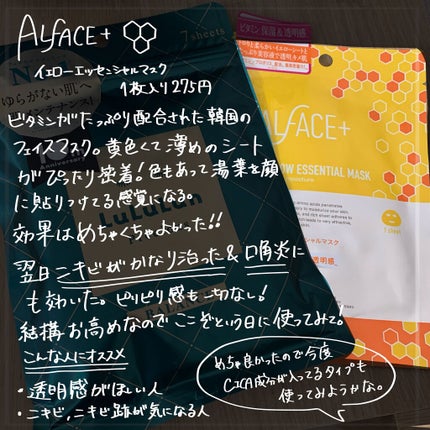 ALFACE+
イエローエッセンシャルマスク
1枚入り275円
ビタミンがたっぷり配合された韓国の
フェイスマスク。黄色くて薄めのシート
がぴったり密着!色もあって湯葉を顔
に貼りつけてる感覚になる。
効果はめちゃくちゃよかった!!
翌日ニキビがかなり治った&口角炎に
も効いた。ピリピリ感も一切ない!
結構お高めなのでここぞという日に使ってみて!
こんな人にオススメ
・透明感がほしい人
・ニキビ、ニキビ跡が気になる人
めちゃ良かったので今度
CICA成分が入ってるタイプも
使ってみようかな。
7 sheets
ゆらがない肌へ
LuLuLun
ビタミン 保湿&透明感
ALFACE+
OW ESSENTIAL MASK
1 sheet
シャルマスク
透明感